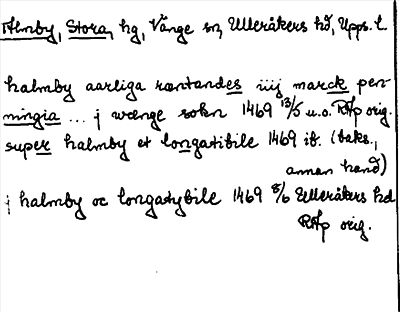 Almby, Stora, hg, Vänge sn, Ulleråkers hd, Upps. l.
halmby aarliga rœntandes iiij marck pen-
ningia ... j wœnge sokn 1469 13/5 u.o. RAp orig.
super halmby et longatibile 1469 ib. (baks.,
annan hand)
j halmby oc longatybile 1469 8/6 Ulleråkers hd
RAp orig.